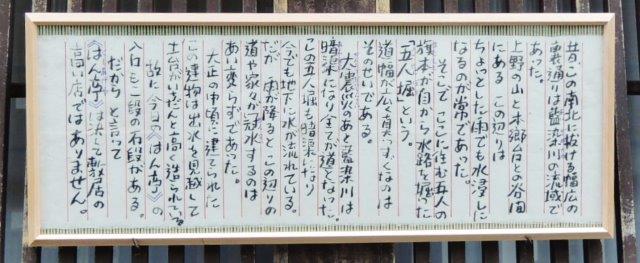 昔、この南北に抜ける幅広の
裏通りは藍染川の流域で
あった。
上野の山と本郷台との谷間
にある この辺りは
ちょっとした雨でも水浸しに
なるのが常であった。
そこで ここに住む五人の
旗本が自から水路を掘った
「五人堀」という。
道幅が広く真っすぐなのは
そのせいである。
大震災のあと藍染川は
暗渠になり全てが道となった。
この五人堀も暗渠になり
今でも地下に水が流れている。
だが 雨が降ると この辺りの
道や家々が冠水するのは
あい変らずであった。
大正の中頃に建てられた
この建物は出水を見越して
土台がいちだんと高く造られている
故に 今日の《はん亭》の
入口も二段の石段がある。
だから と言って
《はん亭》は決して敷居の
高い店ではありません。